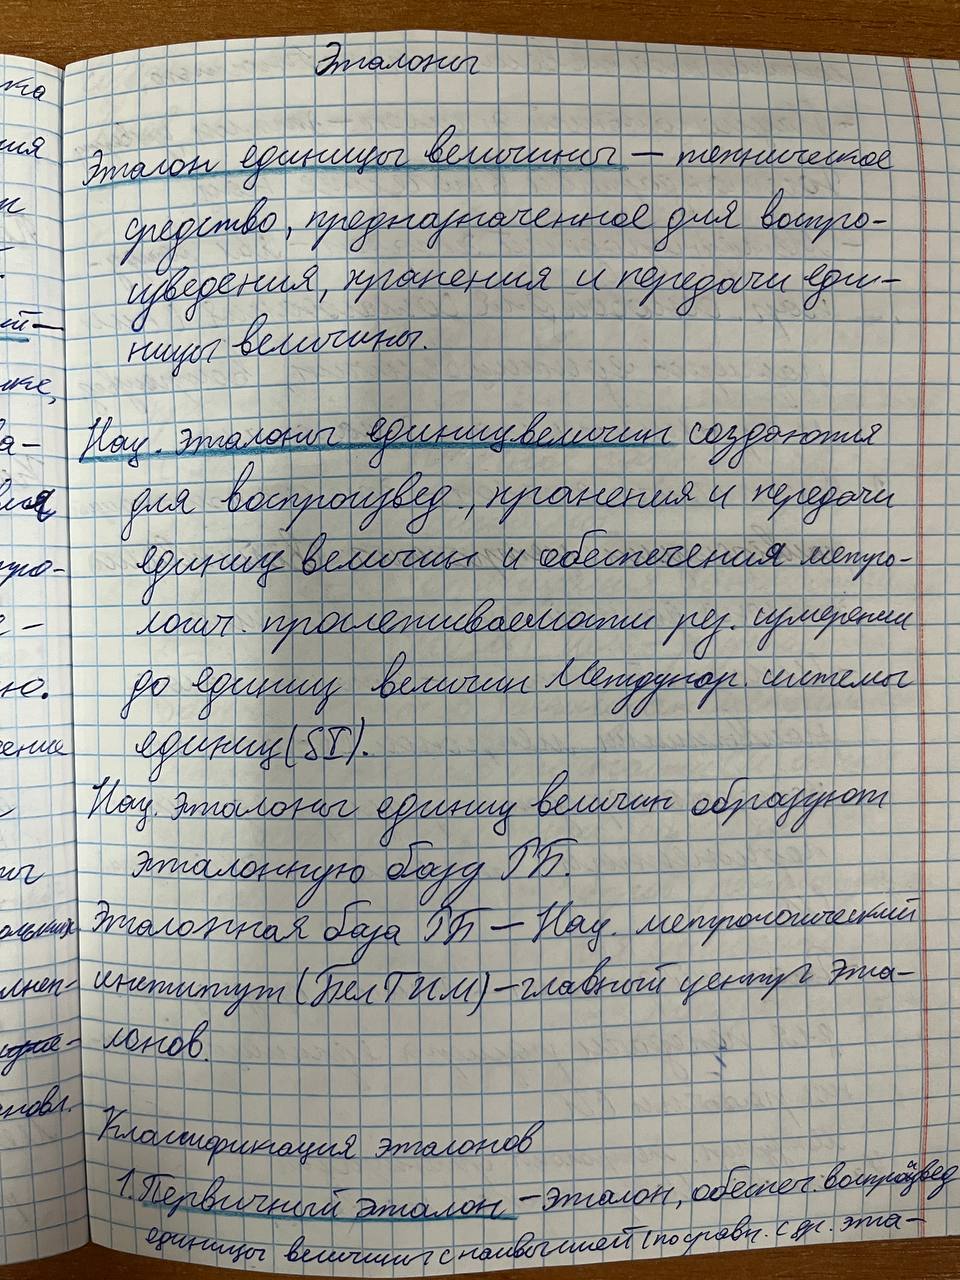 Эталоны
Эталон единицы величины — техническое
средство, предназначенное для воспро-
изведения, хранения и передачи еди-
ницы величины.
Нац. эталоны единиц величин создаются
для воспроизвед., хранения и передачи
единиц величин и обеспечения метро-
логич. прослеживаемости рез. измерений
до единиц величин Междунар. системы
единиц (SI).
Нац. эталоны единиц величин образуют
эталонную базу РБ.
Эталонная база РБ — Нац. метрологический
институт (БелГИМ) — главный центр эта-
лонов.
Классификация эталонов
1. Первичный эталон — эталон, обеспеч. воспроизвед
единицы величины с наивысшей (по сравн. с др. эта-